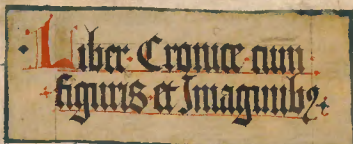 Liber Cronice cum
figuris et Imaginibꝫ